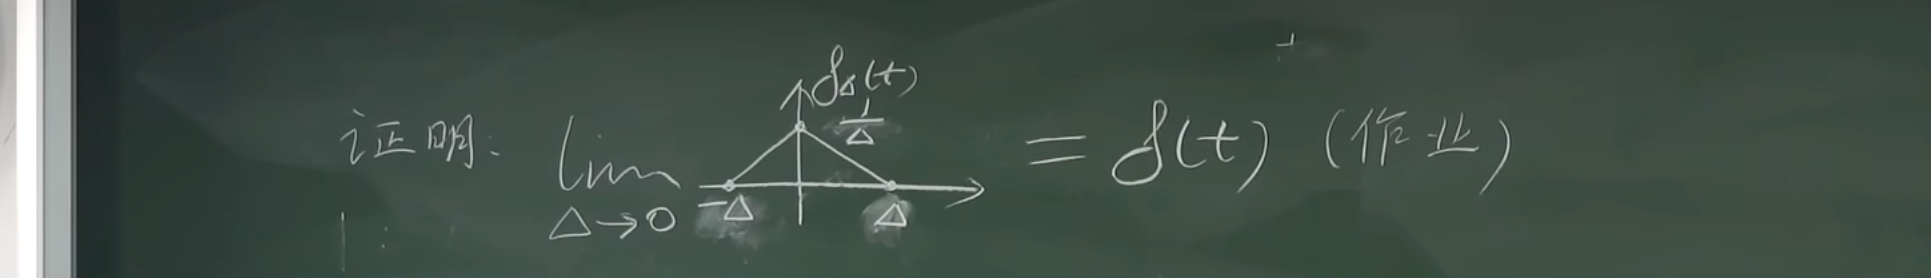 证明: lim Δ→0 δΔ(t) 1/Δ -Δ Δ = δ(t) (作业)